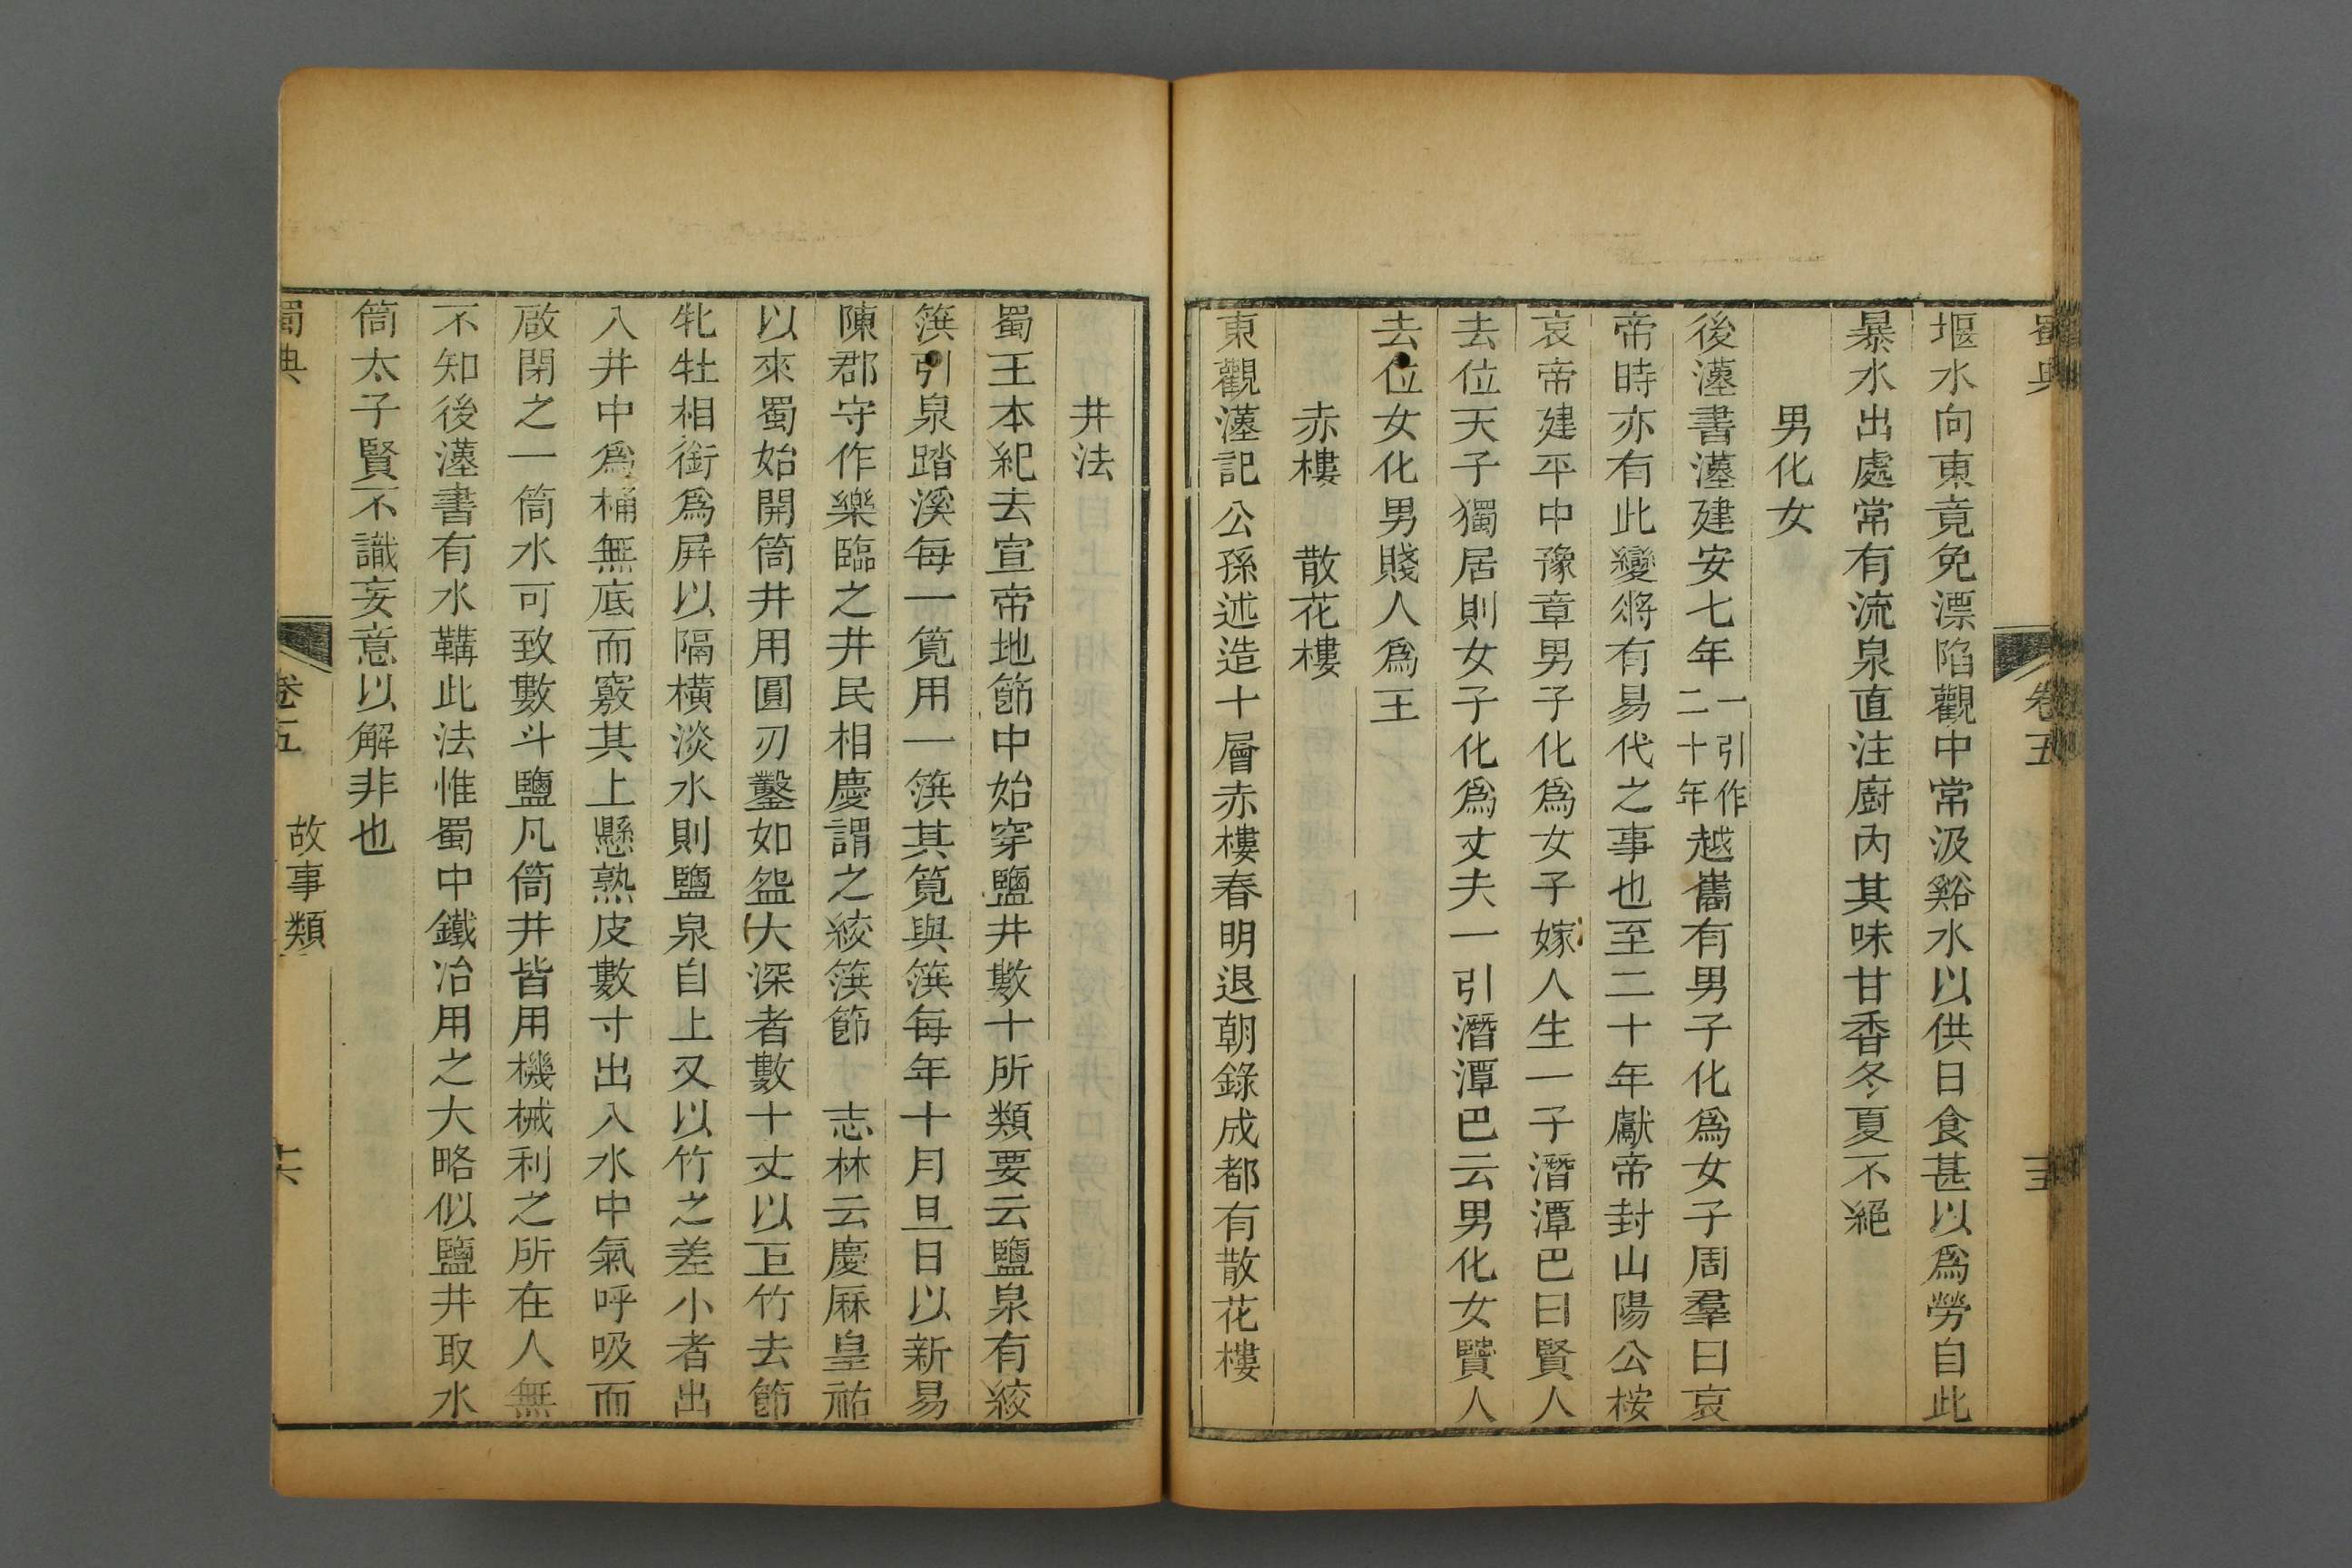 蜀典 卷五
堰水向東竟免漂陷觀中常汲谿水以供日食甚以爲勞自此
暴水出處常有流泉直注廚內其味甘香冬夏不絕
男化女
後漢書漢建安七年一引作二十年越巂有男子化爲女子周羣曰哀
帝時亦有此變將有易代之事也至二十年獻帝封山陽公桉
哀帝建平中豫章男子化爲女子嫁人生一子潛潭巴曰賢人
去位天子獨居則女子化爲丈夫一引潛潭巴云男化女賢人
去位女化男賤人爲王
赤樓 散花樓
東觀漢記公孫述造十層赤樓春明退朝錄成都有散花樓
井法
蜀王本紀去宣帝地節中始穿鹽井數十所類要云鹽泉有絞
篊引泉踏溪每一筧用一篊其筧與篊每年十月旦日以新易
陳郡守作樂臨之井民相慶謂之絞篊節 志林云慶厤皇祐
以來蜀始開筒井用圓刃鑿如盌大深者數十丈以巨竹去節
牝牡相銜爲屏以隔橫淡水則鹽泉自上又以竹之差小者出
入井中爲桶無底而竅其上懸熟皮數寸出入水中氣呼吸而
啟閉之一筒水可致數斗鹽凡筒井皆用機械利之所在人無
不知後漢書有水鞴此法惟蜀中鐵冶用之大略似鹽井取水
筒太子賢不識妄意以解非也
蜀典 卷五 故事類 十六